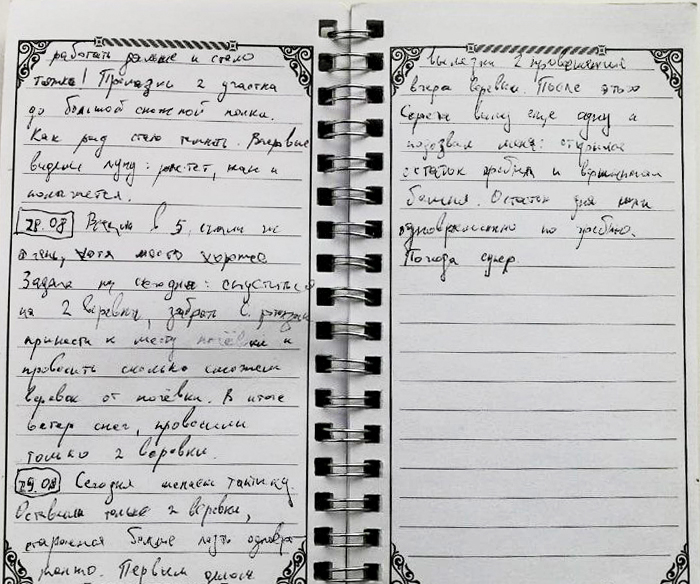 работать дольше и стало
тяжко! Пролазки 2 участка
до большой снежной полки.
Как раз стало темнеть. Впервые
видели луну: растет, как и
полагается.
28.08 Встали в 5, спали не
очень, хотя место хорошее
Задача на сегодня: спуститься
на 2 веревки, забрать
принести к месту ночёвки и
провесить сколько сможем
веревок от ночёвки. В итоге
ветер снег, провесили
только 2 веревки.
29.08 Сегодня меняем тактику.
Оставили только 2 веревки,
стараемся больше лезть одновре
менно. Первым делом
вылезли 2 провешенные
вчера веревки. После этого
Серега вышел еще одну и
подозвал меня:
остаток гребня и вершинная
башня. Остаток дня шли
одновременно по гребню.
Погода супер